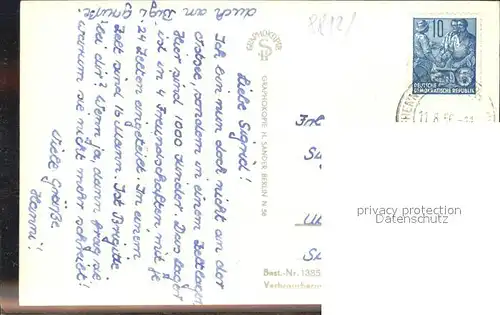 Liebe Sigrid!
Ich bin nun doch nicht an der
Ostsee, sondern in einem Zeltlager.
Hier sind 1000 Kinder. Das Lager
ist in 4 Freundschaften mit je
24 Zelten eingeteilt. In einem
Zelt sind 16 Mann. Ist Brigitte
bei dir? Wenn ja, dann frag sie
warum sie nicht mehr schreibt!
Viele Grüße
Hanni!
auch an
Grüße
GRAPHOKOPIE
GRAPHOKOPIE H. SANDER BERLIN N 58
10
DEUTSCHE
DEMOKRATISCHE REPUBLIK
11.8.56
Frl
privacy protection
Datenschutz
Best.-Nr. 1385